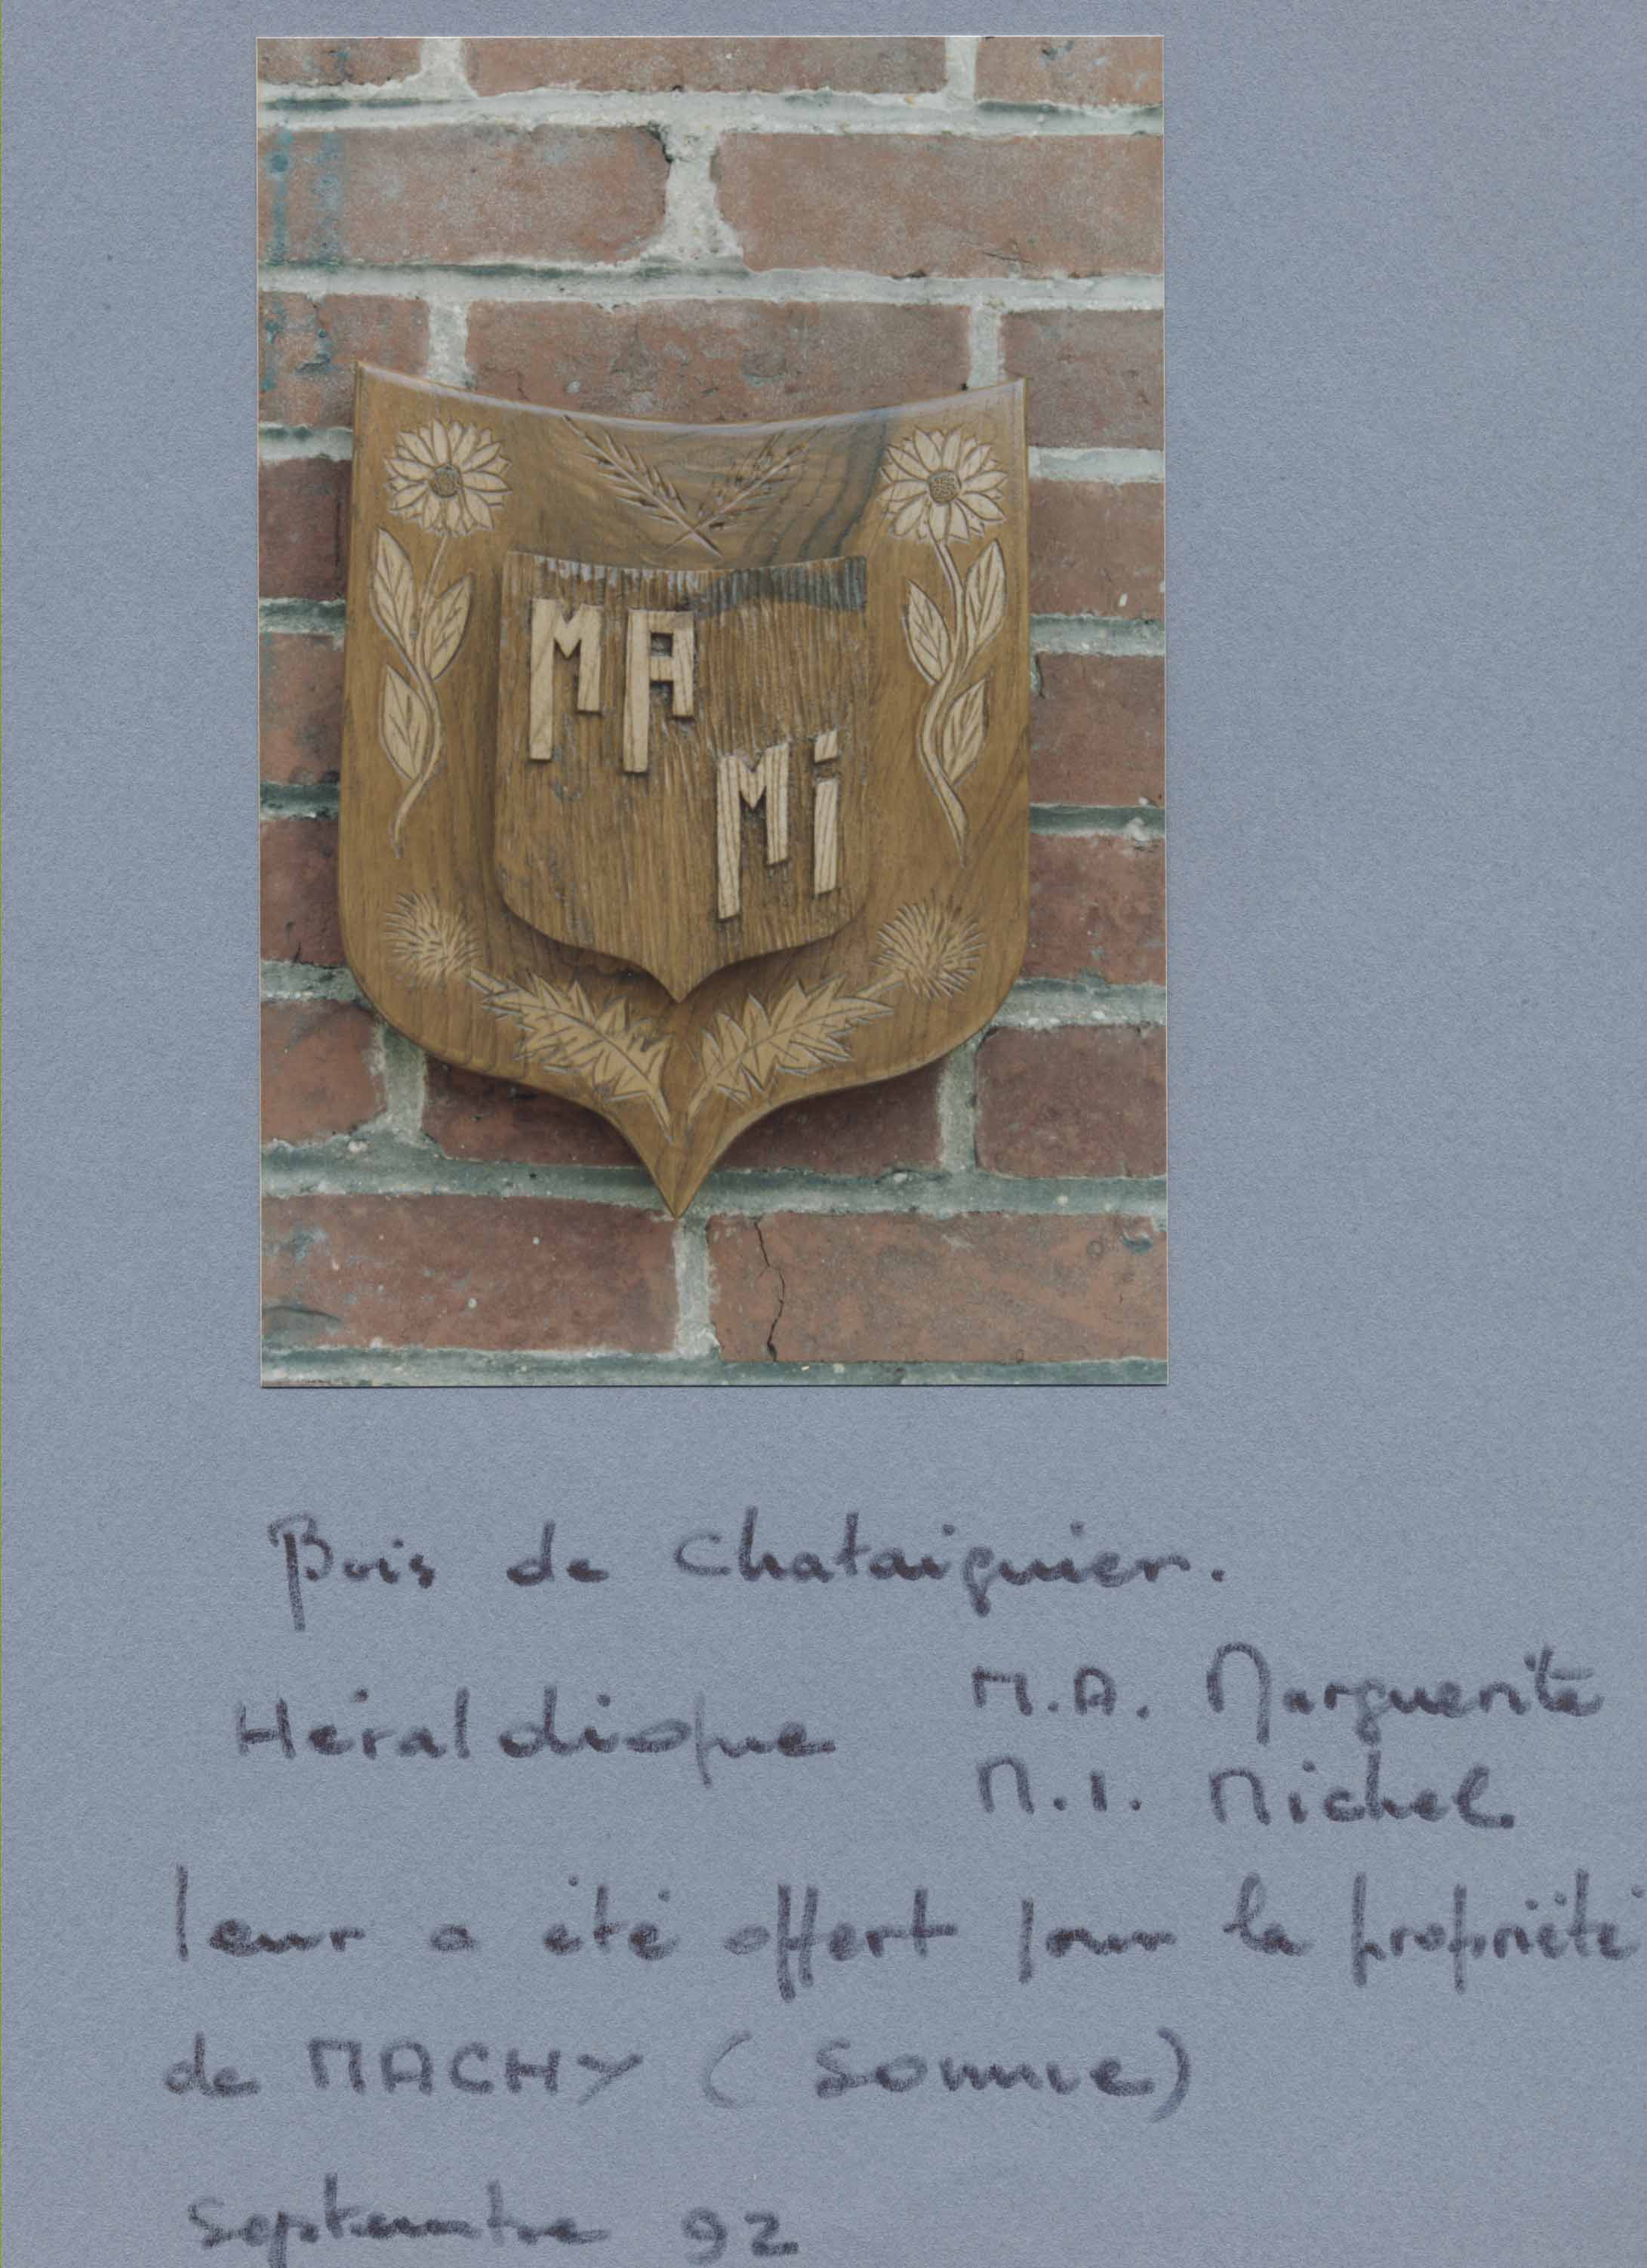 MA
Mi
Bois de Chataignier.
Héraldique
M.A. Marguerite
M.I. Michel
leur a été offert pour la propriété
de MACHY (Somme)
Septembre 92